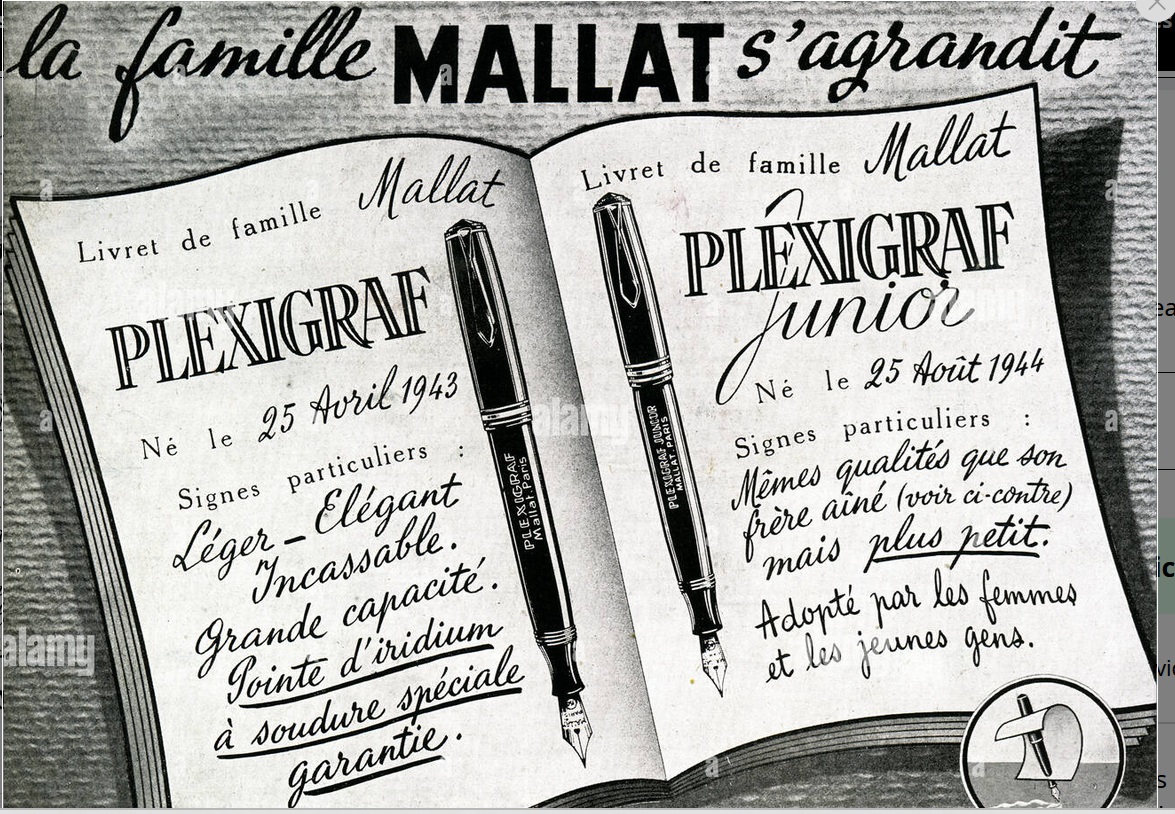 la famille MALLAT s'agrandit
Livret de famille Mallat
PLEXIGRAF
Né le 25 Avril 1943
Signes particuliers :
Léger – Elégant
Incassable.
Grande capacité.
Pointe d'iridium
à soudure spéciale
garantie.
PLEXIGRAF
Mallat.Paris
Livret de famille Mallat
PLEXIGRAF
Junior
Né le 25 Août 1944
Signes particuliers :
Mêmes qualités que son
frère aîné (voir ci-contre)
mais plus petit.
Adopté par les femmes
et les jeunes gens.
PLEXIGRAF JUNIOR
MALLAT.PARIS
alamy
alamy
alamy
alamy
a
a
a
a
a
a
a
a